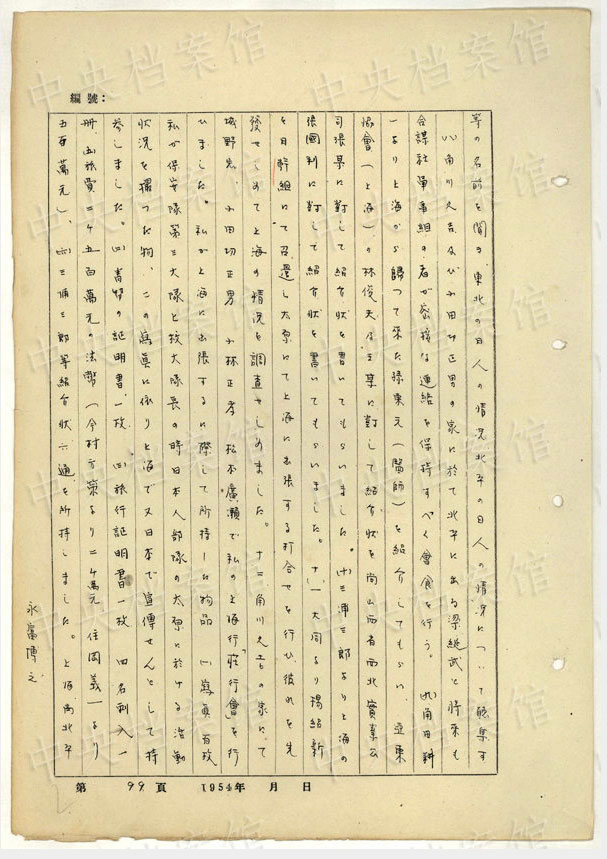 編號：
等の名前を聞き、東北の日人の情況北平の日人の情況について聴集す
(八)角川久吉及び小田切正男の家に於て北平に出る梁綖武と将来も
合謀 の者が密接な連絡を保持すべく會食を行う。(九)角田
一より上海から歸つて来た孫東元(醫師)を紹介してもらい、亞東
協會(上海)の林俊夫及王某に對して紹介状を尚山西省西北實業公
司張某に對して紹介状を書いてもらいました。(十)三浦三郎より上海の
張國利に對して紹介状を書いてもらいました。十一大同より楊紹新
を召還し太原にて上海に出張する打合せを行ひ彼れを先
發せしめて上海の情況を調査せしめました。十二角川久吉の家にて
城野宏、小田切正男、小林正孝、松本廣瀬で私の上海行「壮行會」を行
ひました。私が上海に出張するに際して所持した物品(一)寫真百枚
私が保安隊第三大隊と教大隊長の時日本人部隊の太原に於ける活動
状況を撮つた物、この寫真に依り上海で又日本で宣傳せんとして持
参しました。(二) の証明書一枚(三)旅行証明書一枚(四)名刺入一
冊、(五)旅費二千五百萬元の法幣(今村方策より二千萬元、住岡義一より
五百萬元)、(六)三浦三郎等紹介状六通を所持しました。上海南北平
永富博之
第 99 頁 1954年 月 日
中央档案馆